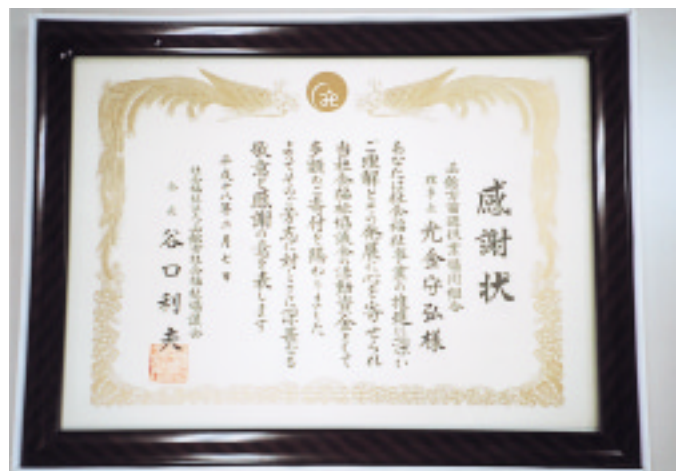 感謝状
理事長 光金守弘様
あなたは社会福祉事業の推進に深い
ご理解とその発展に心を寄せられ
当社会福祉協議会の活動資金として
多額のご寄付を賜わりました
よってそのご芳志に対しここに深甚なる
敬意と感謝の意を表します
平成十八年二月七日
会長 谷口利夫